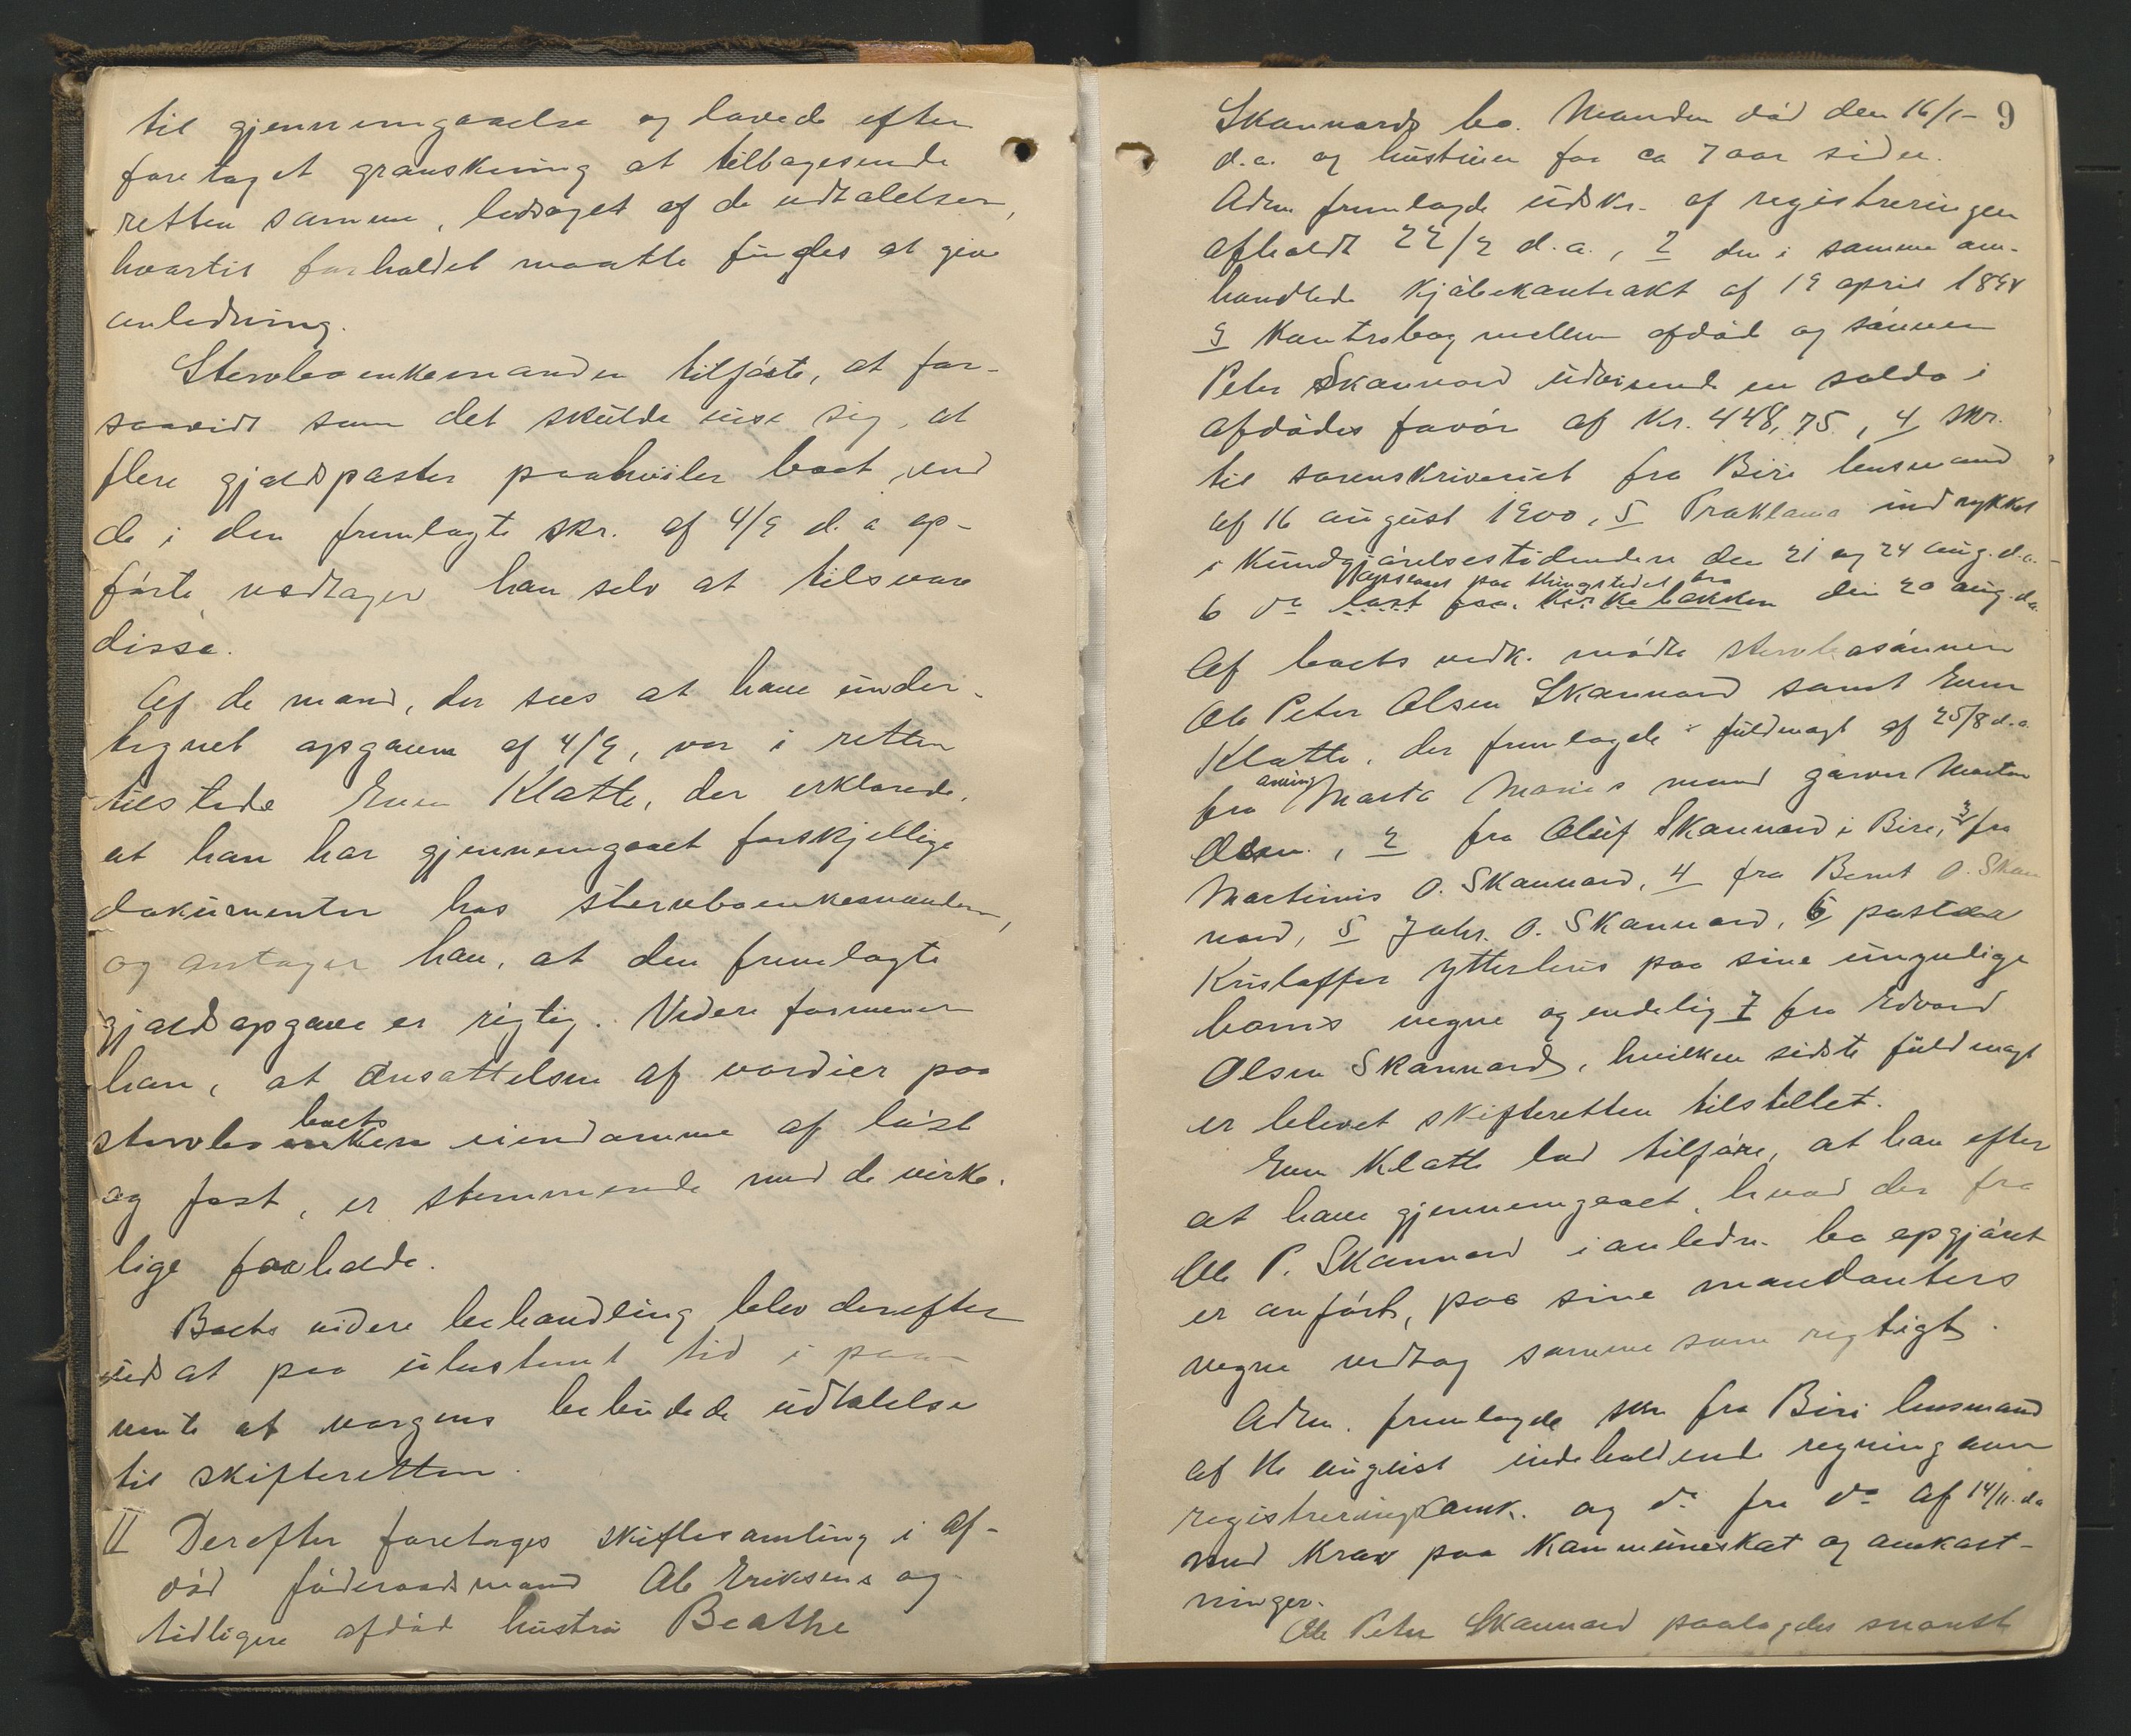 til gjennemgaaelse og lovede efter
foretaget granskning at tilbagesende
retten samme, ledsaget af de udtalelser,
hvortil forholdet maatte findes at give
anledning.
Stervboenkemanden tilførte, at for-
saavidt som det skulde vise sig, at
flere gjældsposter paahviler boet, end
de i den fremlagte skr. af 4/9 d. a op-
førte, vedtager han selv at tilsvare
disse.
Af de mænd, der sees at have under-
tegnet opgaven af 4/9, var i retten
tilstede Even Klatte, der erklærede,
at han har gjennemgaaet forskjellige
dokumenter hos stervboenkemanden,
og antager han, at den fremlagte
gjældsopgave er rigtig. Videre formener
han, at ansættelsen af værdier paa
stervboets eiendomme af løst
og fast, er stemmende med de virke-
lige forholde.
Boets videre behandling blev derefter
udsat paa ubestemt tid i paa-
vente af værgens bebudede udtalelse
til skifteretten.
II Derefter foretoges skiftesamling i af-
død føderaadsmand Ole Eriksens og
tidligere afdøde hustru Beathe
Skannords bo. Manden død den 16/1- 9
d.a. og hustruen for ca 7 aar siden.
Adm fremlagde udskr. af registreringen
afholdt 22/2 d.a., 2 den i samme om-
handlede kjøbekontrakt af 19 april 1898
3 Kontrabog mellem afdød og sønnen
Peter Skannord udvisende en saldo i
afdødes favør af Kr. 448,75, 4 skr.
til sorenskriveriet fra Biri lensmand
af 16 august 1900, 5 Proklama indrykket
i Kundgjørelsestidenden den 21 og 24 aug. d.a.-
opslaaet paa thingstedet fra
6 do læst fra kirkebakken den 20 aug. d.a.
Af boets vedk. mødte stervbosønnen
Ole Peter Olsen Skannord samt Even
Klatte, der fremlagde fuldmagt af 25/8 d.a.
fra arving Marta Maries mand garver Morten
Olsen, 2 fra Oluf Skannord i Biri, 3 fra
Martinius O. Skannord, 4 fra Bernt O. Skan
nord, 5 Johs. O. Skannord, 6 
Kristoffer Ytterhus paa sine umyndige
børns vegne og endelig 7 fra Edvard
Olsen Skannord, hvilken sidste fuldmagt
er blevet skifteretten tilstillet.
Even Klatte lod tilføre, at han efter
at have gjennemgaaet, hvad der fra
Ole P. Skannord i anledn. boopgjøret
er anført, paa sine mandanters
vegne vedtog samme som rigtigt.
Adm. fremlagde skr fra Biri lensmand
af 16 august indeholdende regning over
registreringsomk. og do fra do af 14/11. d.a
med krav paa kommuneskat og omkost-
ninger.
Ole Peter Skannord paalagdes snarest